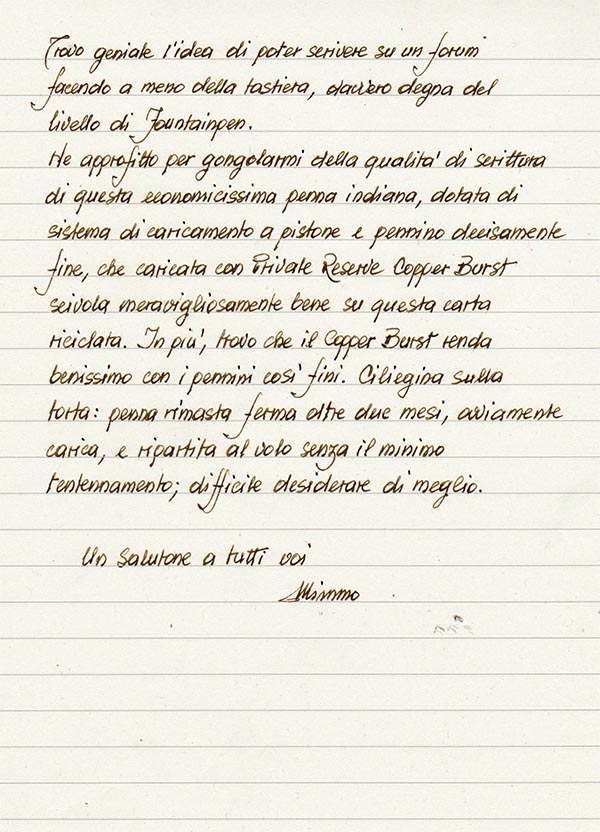 Trovo geniale l'idea di poter scrivere su un forum
facendo a meno della tastiera, davvero degna del
livello di Fountainpen.
Ne approfitto per gongolarmi della qualità di scrittura
di questa economicissima penna indiana, dotata di
sistema di caricamento a pistone e pennino decisamente
fine, che caricata con Private Reserve Copper Burst
scivola meravigliosamente bene su questa carta
riciclata. In più, trovo che il Copper Burst renda
benissimo con i pennini così fini. Ciliegina sulla
torta: penna rimasta ferma oltre due mesi, ovviamente
carica, e ripartita al volo senza il minimo
tentennamento; difficile desiderare di meglio.
Un salutone a tutti voi
Mimmo